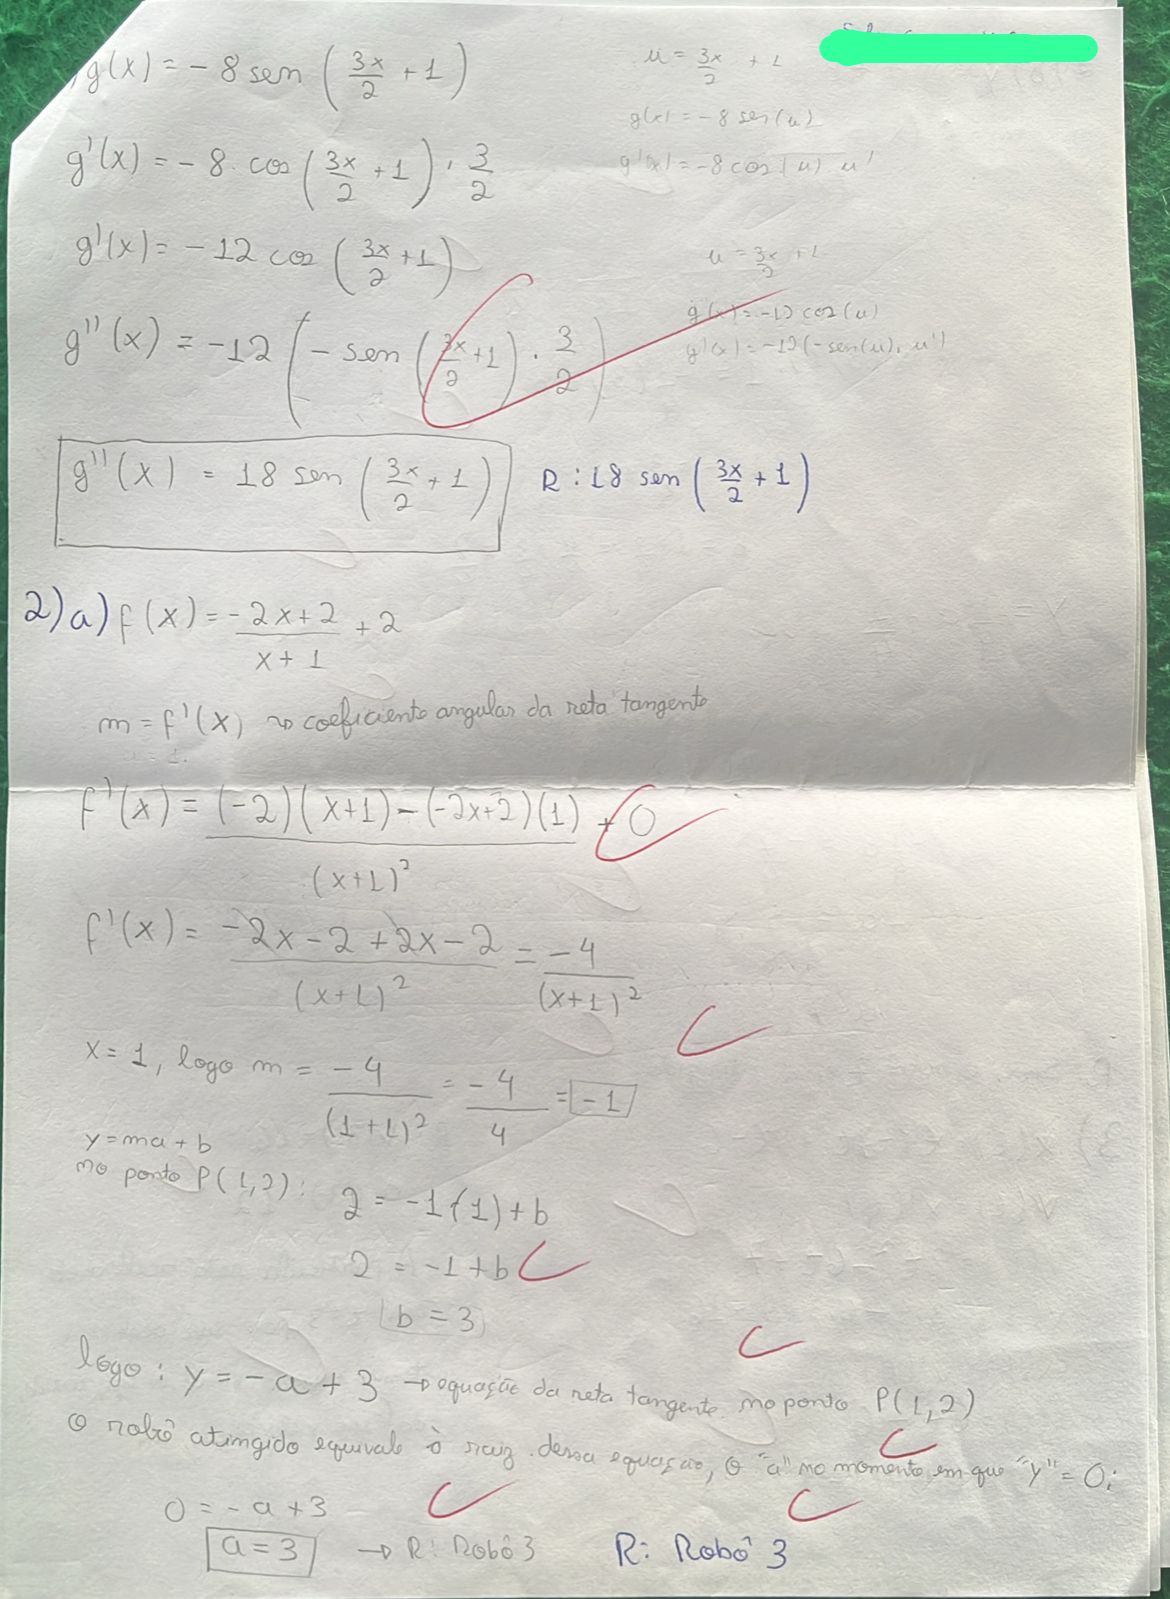 g(x) = - 8 sen (3x/2 + 1)
u = 3x/2 + 1
g(x) = -8 sen(u)
g'(x) = - 8 . cos (3x/2 + 1) . 3/2
g'(x) = -8 cos(u) u'
g'(x) = - 12 cos (3x/2 + 1)
u = 3x/2 + 1
g''(x) = -12 (- sen (3x/2 + 1) . 3/2)
g'(x) = -12 cos(u)
g''(x) = -12 (-sen(u) . u')
g''(x) = 18 sen (3x/2 + 1) R : 18 sen (3x/2 + 1)
2) a) f(x) = (-2x+2)/(x+1) + 2
m = f'(x) ~> coeficiente angular da reta tangente
f'(x) = ((-2)(x+1) - (-2x+2)(1))/(x+1)² + 0
f'(x) = (-2x - 2 + 2x - 2)/(x+1)² = -4/(x+1)²
x = 1, logo m = -4/(1+1)² = -4/4 = -1
y = ma + b
no ponto P(1,2):
2 = -1(1) + b
2 = -1 + b
b = 3
logo : y = - a + 3 → equação da reta tangente no ponto P(1,2)
O robô atingido equivale à raiz dessa equação, o "a" no momento em que "y" = 0;
0 = - a + 3
a = 3 → R: Robô 3 R: Robô 3